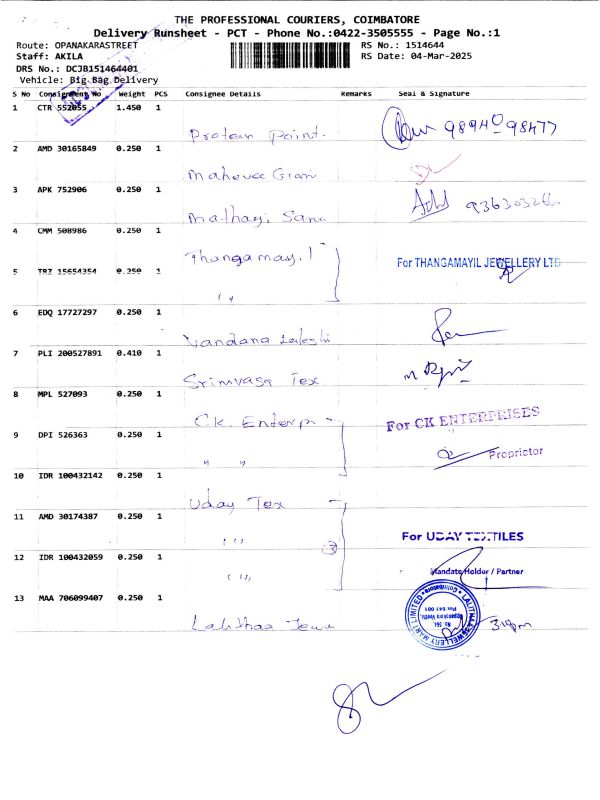 THE PROFESSIONAL COURIERS, COIMBATORE
Delivery Runsheet - PCT - Phone No.:0422-3505555 - Page No.:1
Route: OPANAKARASTREET RS No.: 1514644
Staff: AKILA RS Date: 04-Mar-2025
DRS No.: DCJB151464401
Vehicle: Big Bag Delivery
S No Consignment No Weight PCS Consignee Details Remarks Seal & Signature
1 CTR 552055 1.450 1
Protein Point. 98940 98477
2 AMD 30165849 0.250 1
3 APK 752906 0.250 1
4 CMM 508986 0.250 1
Thangamayil
For THANGAMAYIL JEWELLERY LTD
5 TRZ 15654354 0.250 1
" "
6 EDQ 17727297 0.250 1
Vandana
7 PLI 200527891 0.410 1
Srinivasa Tex
8 MPL 527093 0.250 1
CK. Enterp
For CK ENTERPRISES
9 DPI 526363 0.250 1
Proprietor
" "
10 IDR 100432142 0.250 1
Uday Tex
11 AMD 30174387 0.250 1
For UDAY TEXTILES
" "
3
12 IDR 100432059 0.250 1
Mandate Holder / Partner
" "
13 MAA 706099407 0.250 1
LALITHAA JEWELLERY MART LIMITED
No 564
Oppanakara Veethi
Pin 641 001
Coimbatore
Lalithaa Jewe